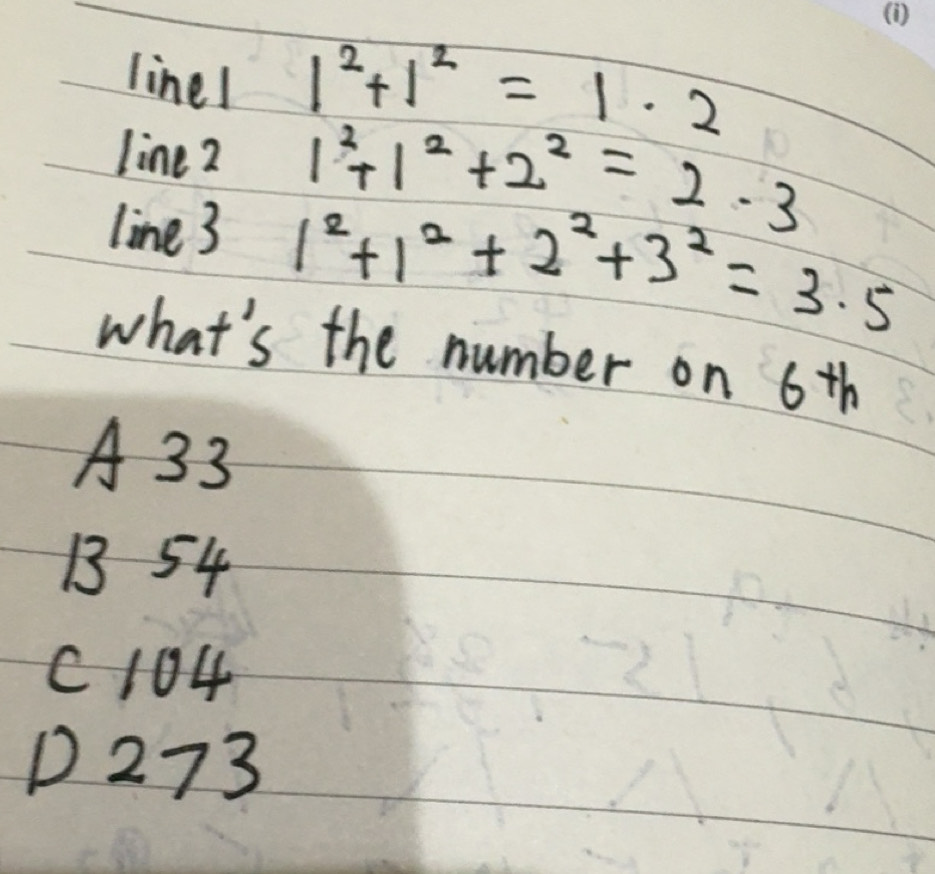 (i)
line1 1²+1² = 1 · 2
line 2 1²+1²+2² = 2 · 3
line 3 1²+1²+2²+3² = 3 · 5
what's the number on 6th
A 33
B 54
C 104
D 273